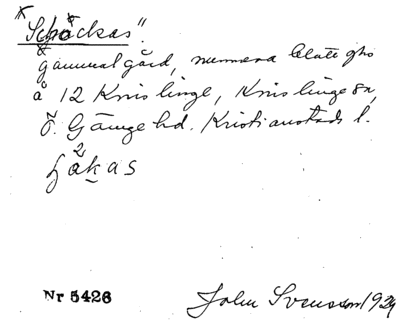 "Schåckas".
gammal gård, numera blott ghs
å 12 Knislinge, Knislinge sn,
Ö. Göinge hd. Kristianstads l.
håkas
Nr 5426 John Svensson 1929